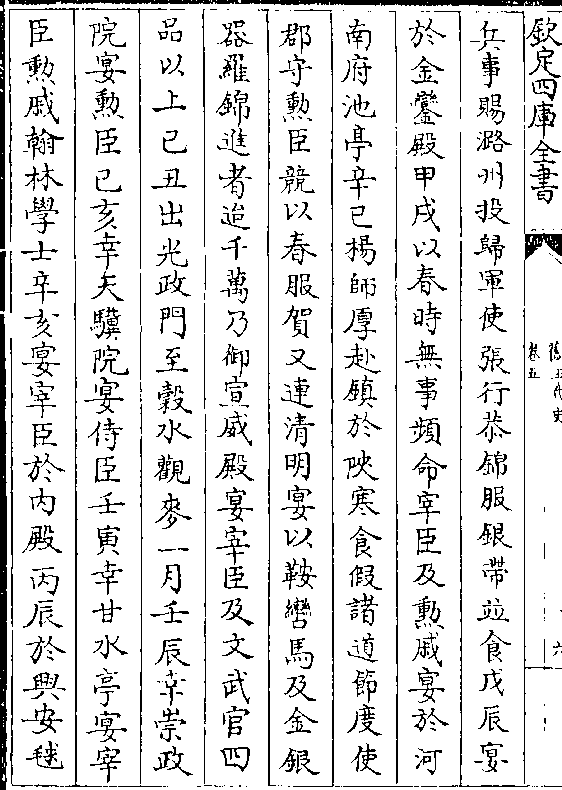 欽定四庫全書
舊五代史
卷五
六
兵事賜潞州投歸軍使張行恭錦服銀帶並食戊辰宴
於金鑾殿甲戌以春時無事頻命宰臣及勲戚宴於河
南府池亭辛巳楊師厚赴鎮於陜寒食假諸道節度使
郡守勲臣競以春服賀又連清明宴以鞍轡馬及金銀
器羅錦進者迨千萬乃御宣威殿宴宰臣及文武官四
品以上己丑出光政門至榖水觀麥一月壬辰幸崇政
院宴勲臣己亥幸天驥院宴侍臣壬寅幸甘水亭宴宰
臣勲戚翰林學士辛亥宴宰臣於内殿丙辰於興安毬